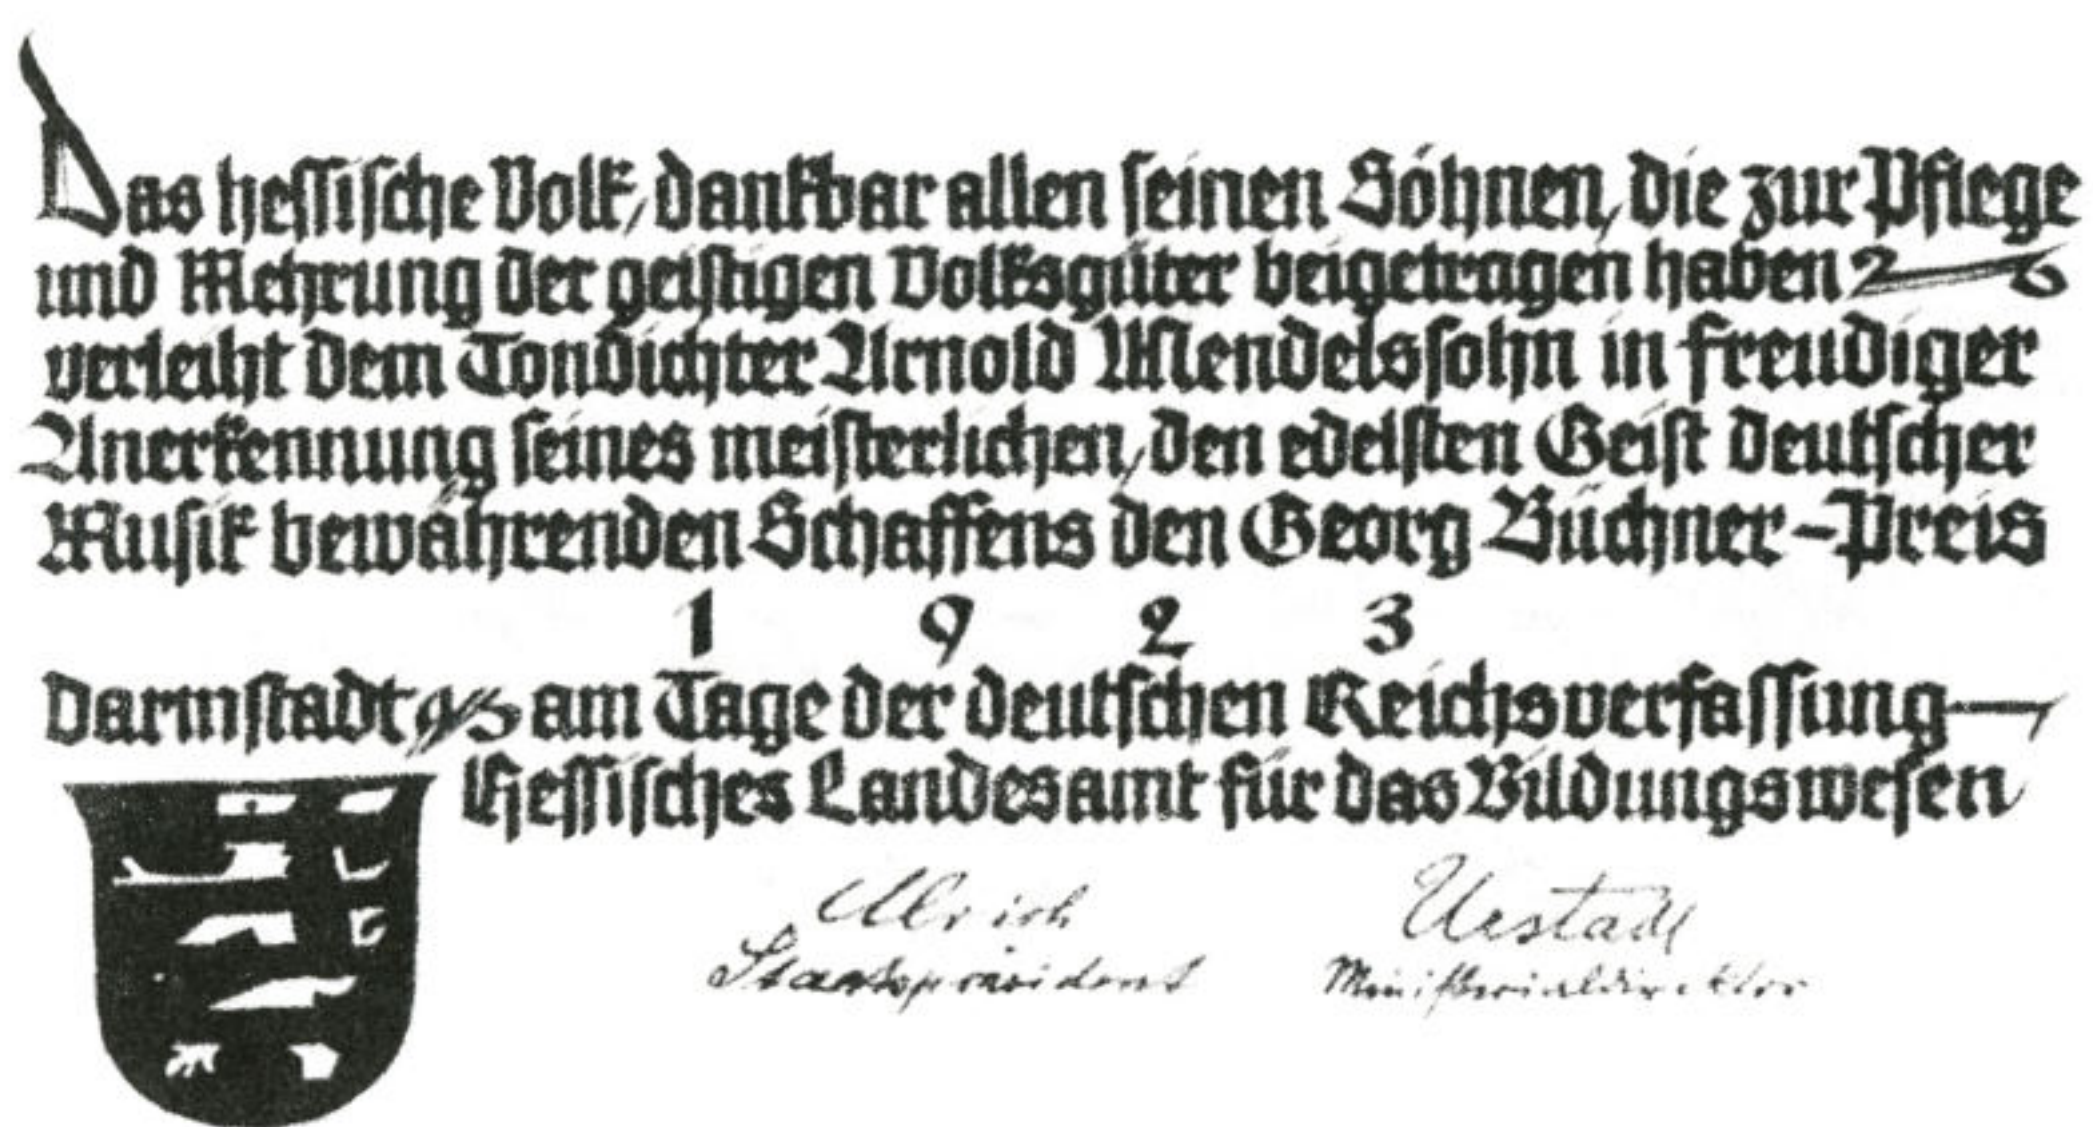 Das hessische Volk, dankbar allen seinen Söhnen, die zur Pflege
und Mehrung der geistigen Volksgüter beigetragen haben
verleiht dem Tondichter Arnold Mendelssohn in freudiger
Anerkennung seines meisterlichen, den edelsten Geist deutscher
Musik bewährenden Schaffens den Georg Büchner-Preis
1 9 2 3
Darmstadt am Tage der deutschen Reichsverfassung
Hessisches Landesamt für das Bildungswesen
Ulrich Urstadt
Staatspräsident Ministerialdirektor